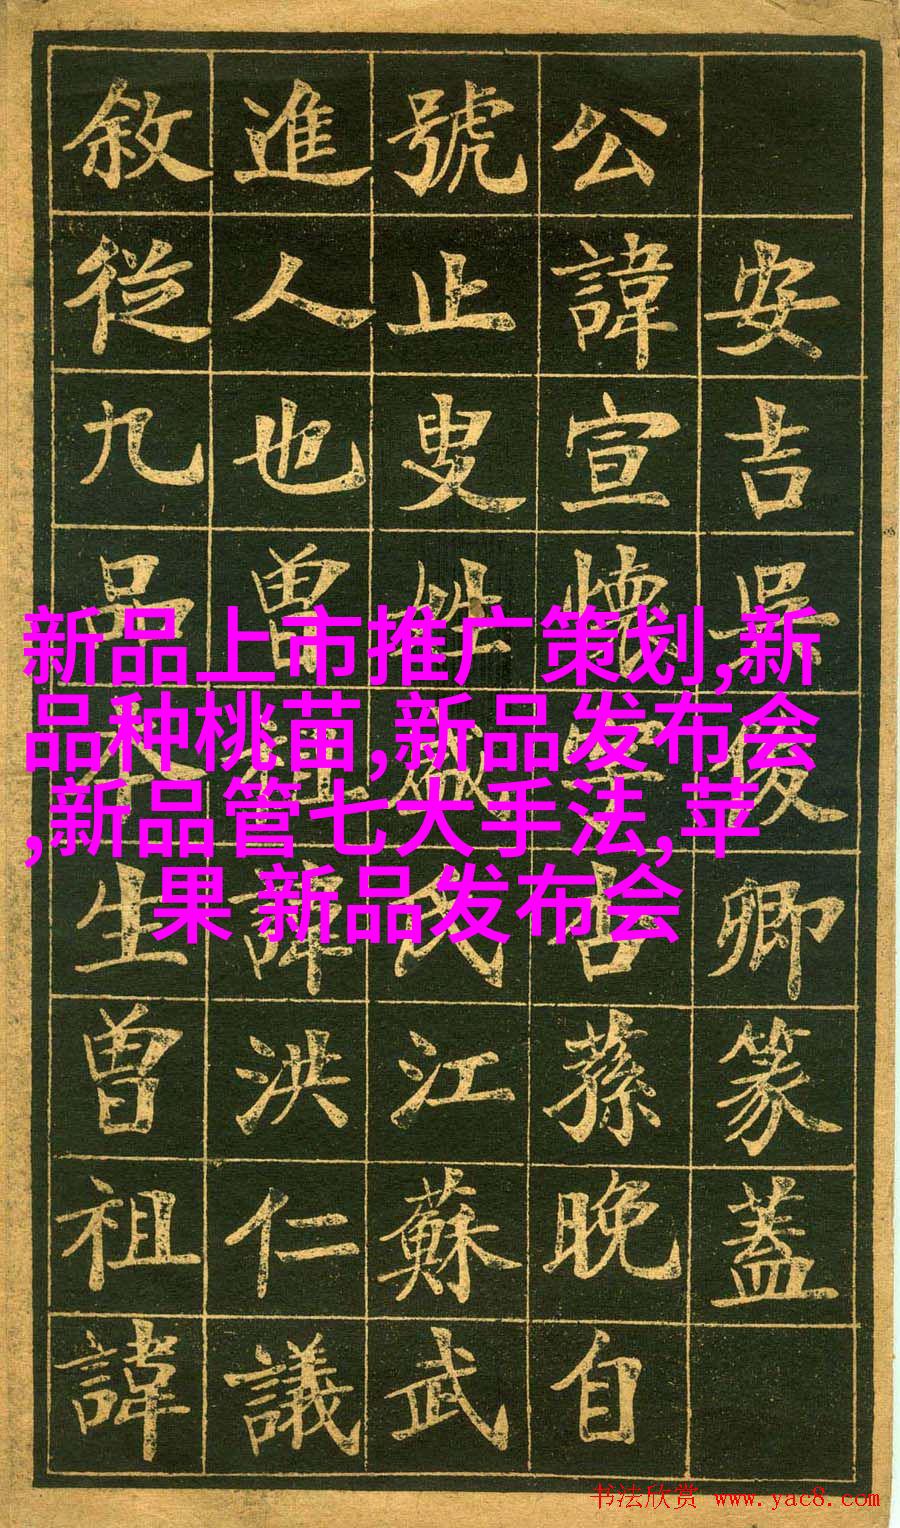 安吉吳俊卿篆蓋
公諱宣懷字杏蓀晚自
號止叟姓盛氏江蘇武
進人也曾祖諱洪仁議
敘從九品本生曾祖諱
新品上市推广策划,新
品种桃苗,新品发布会
,新品管七大手法,苹
果 新品发布会
书法欣赏 www.yac8.com